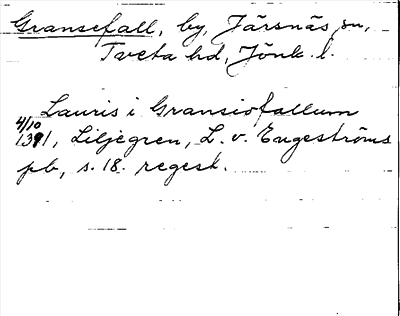 Gransefall, by, Järsnäs sn,
Tveta hd, Jönk. l.
Lauris i Gransiofallum
4/10
1391, Liljegren, L. v. Engeströms
pb, s. 18. regest.